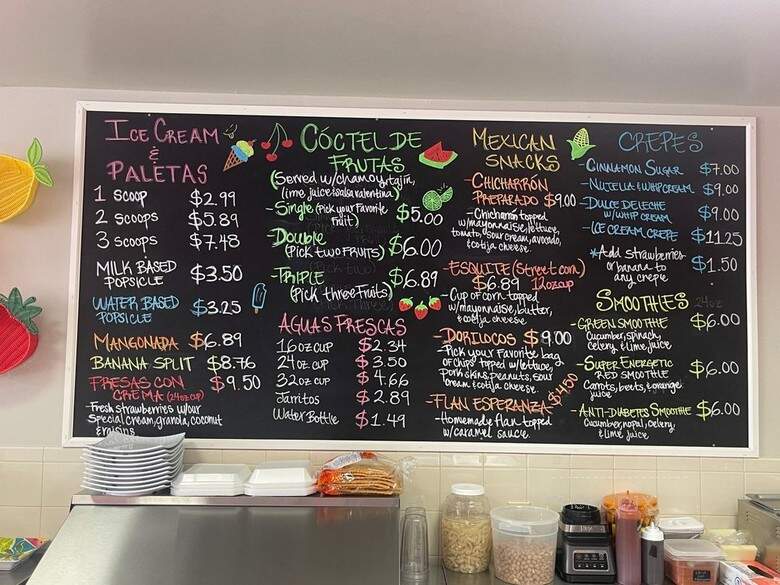 ICE CREAM
&
PALETAS
1 SCOOP $2.99
2 SCOOPS $5.89
3 SCOOPS $7.48
MILK BASED
POPSICLE $3.50
WATER BASED
POPSICLE $3.25
MANGONADA $6.89
BANANA SPLIT $8.76
FRESAS CON
CREMA (24oz CUP) $9.50
-Fresh strawberries w/our
Special cream, granola, coconut
& raisins
CÓCTEL DE
FRUTAS
(Served w/chamoy, tajin,
lime juice & salsa valentina)
-Single (Pick your Favorite
Fruit) $5.00
-Double
(PICK TWO FRUITS) $6.00
-TRIPLE
(Pick three fruits) $6.89
AGUAS FRESCAS
16 oz CUP $2.34
24 oz CUP $3.50
32 oz CUP $4.66
Jarritos $2.89
Water Bottle $1.49
MEXICAN
SNACKS
-CHICHARRÓN
PREPARADO $9.00
-Chicharron topped
w/mayonnaise, lettuce,
tomato, sour cream, avocado,
& cotija cheese
-ESQUITE (Street corn)
$6.89 12oz cup
-Cup of corn topped
w/mayonnaise, butter,
& cotija cheese
-DORILOCOS $9.00
-Pick your Favorite bag
of chips topped w/lettuce,
pork skins, peanuts, sour
cream & cotija cheese
-FLAN ESPERANZA $4.50
-Homemade flan topped
w/caramel sauce
CREPES
-CINNAMON SUGAR $7.00
-NUTELLA & WHIP CREAM $9.00
-DULCE DE LECHE
w/ WHIP CREAM $9.00
-ICE CREAM CREPE $11.25
*Add strawberries
or banana to
any crepe $1.50
SMOOTHIES 24oz
-GREEN SMOOTHIE $6.00
Cucumber, spinach,
celery & lime juice
-SUPER ENERGETIC
RED SMOOTHIE $6.00
Carrots, beets, & orange
juice
-ANTI-DIABETES SMOOTHIE $6.00
Cucumber, nopal, celery,
& lime juice